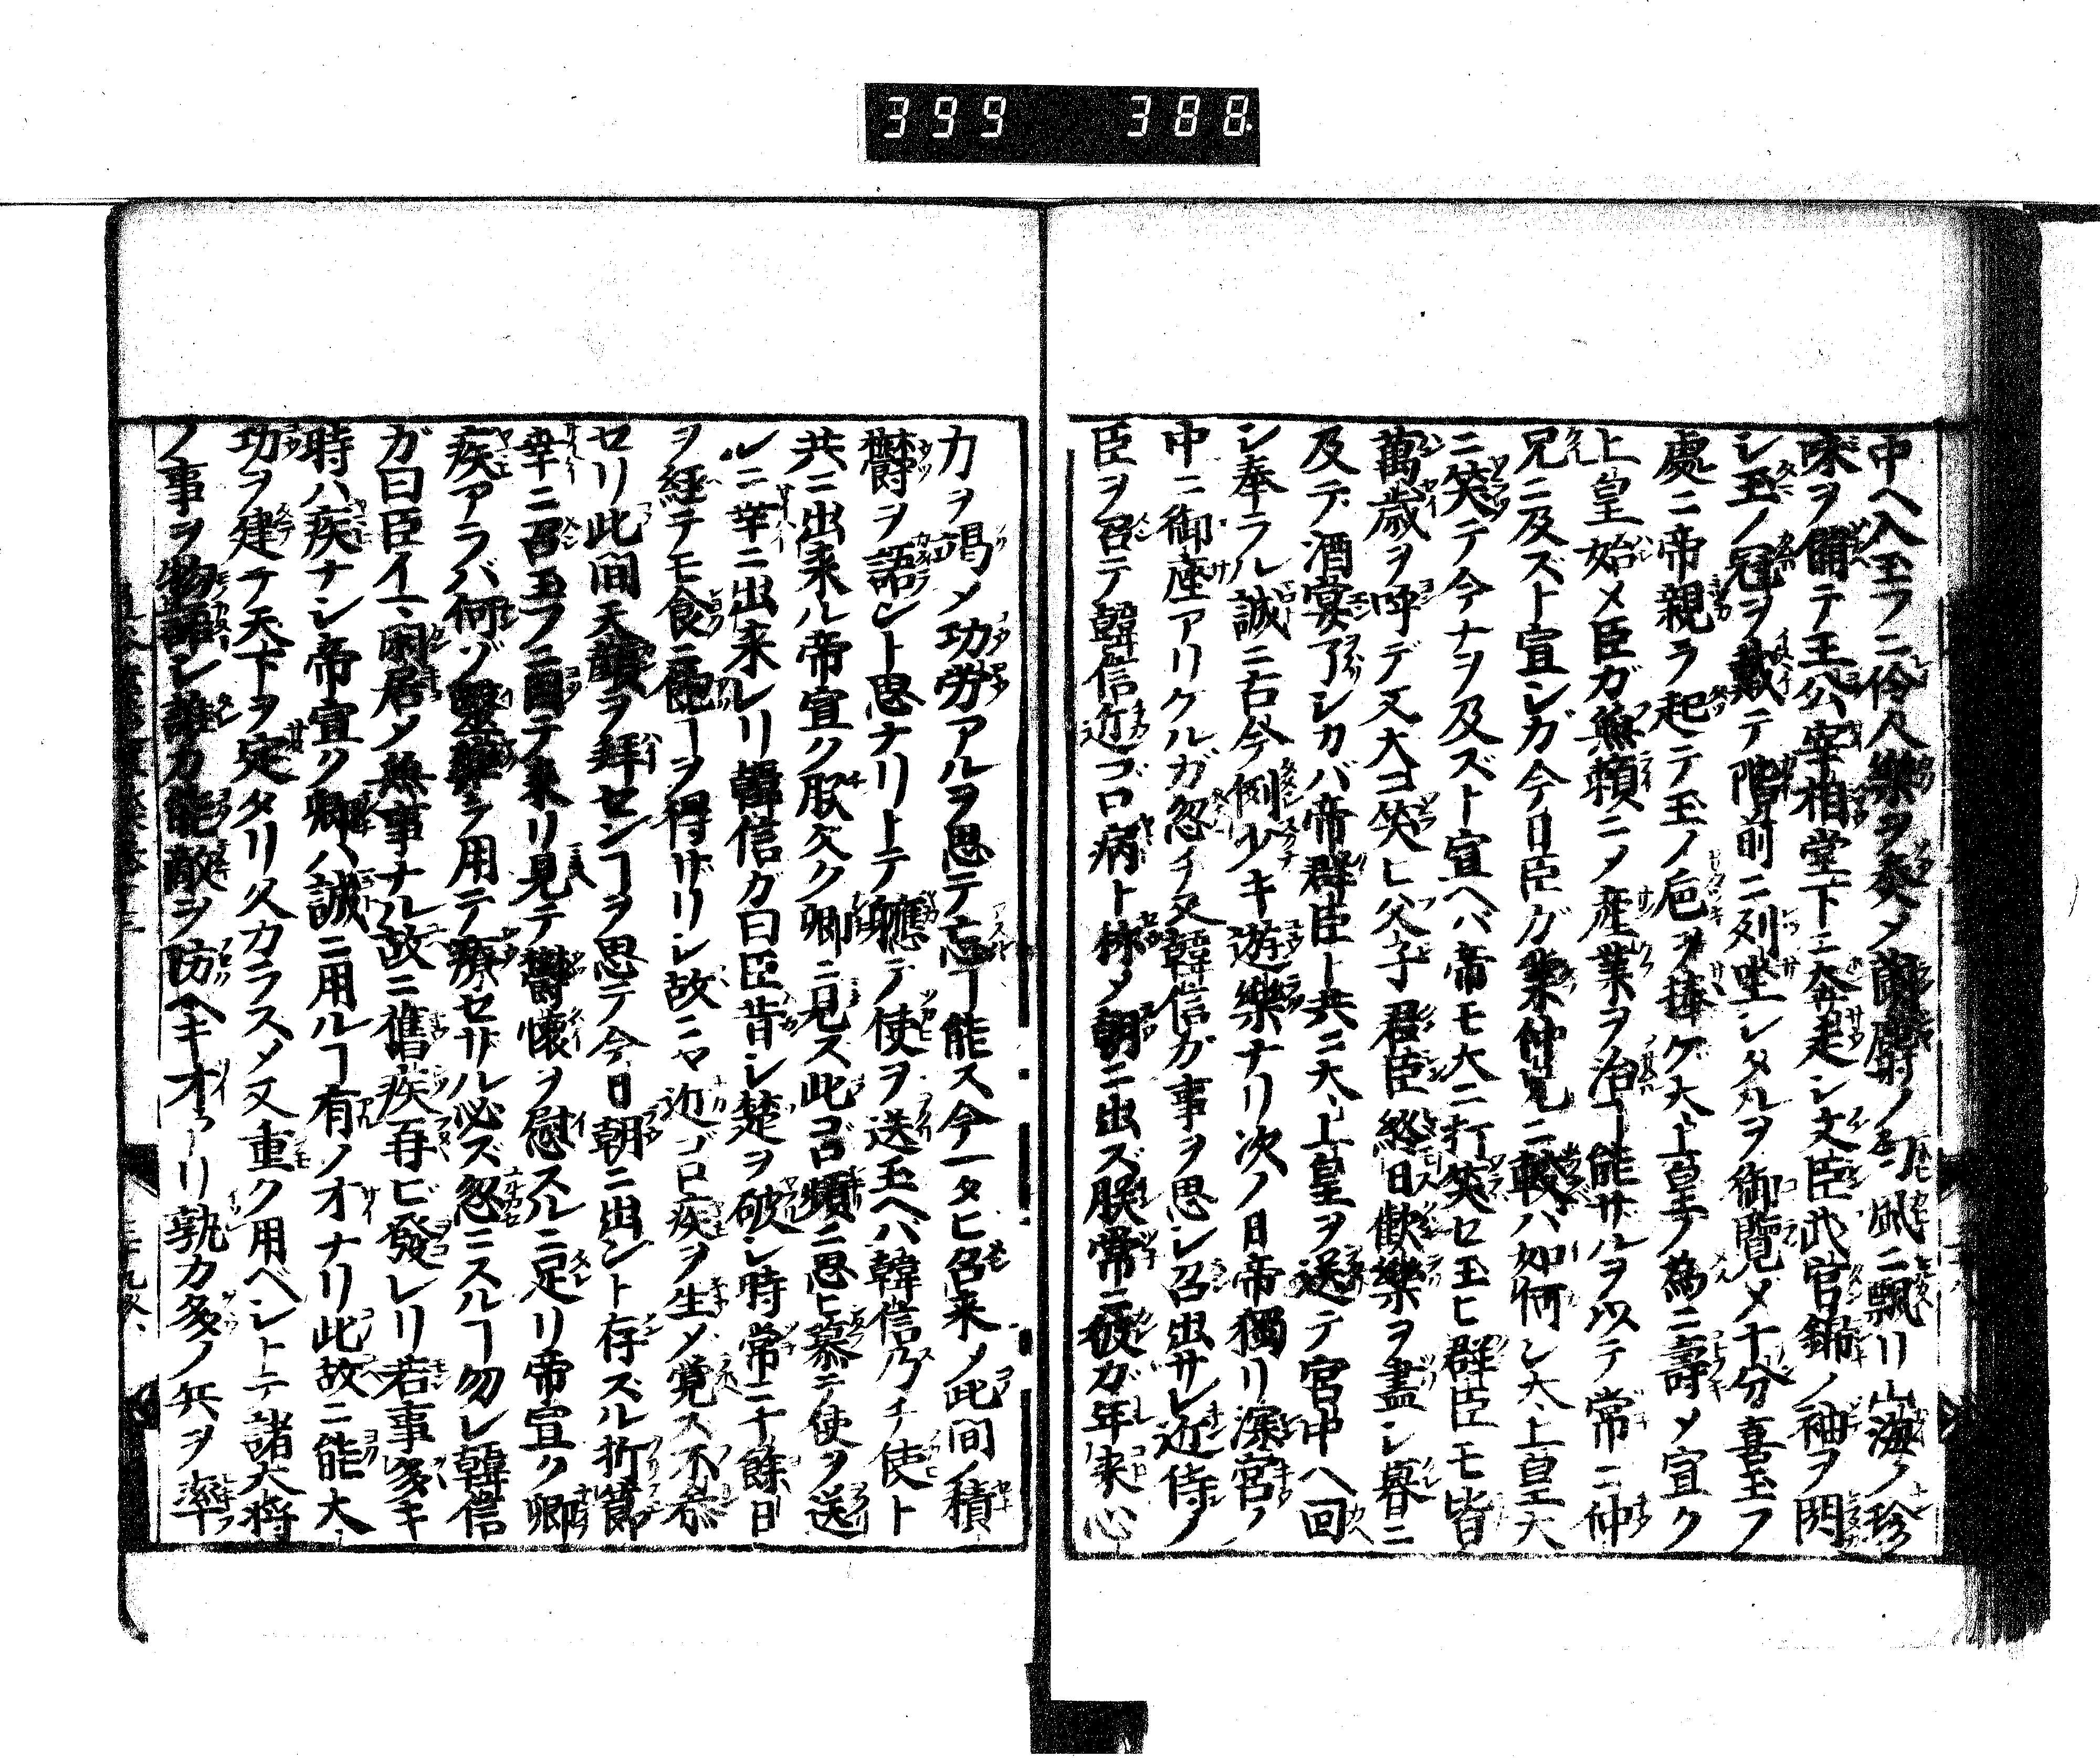 399 388
中ヘ入玉フニ伶人樂ヲ奏メ蘭麝ノ匂風ニ飄リ山海ノ珍
味ヲ備テ王公宰相堂下ニ奔走シ文臣武官錦ノ袖ヲ閃
シ玉ノ冠ヲ戴テ階前ニ列坐シタルヲ御覽メ十分喜玉フ
處ニ帝親ラ起テ玉ノ巵ヲ捧ゲ太上皇ノ為ニ壽メ宣ク
上皇始メ臣ガ無頼ニメ産業ヲ治ヿ能サルヲ以テ常ニ仲
兄ニ及ズト宣シガ今日臣ガ業仲兄ニ較バ如何シ太上皇大
ニ笑テ今ナヲ及ズト宣ヘバ帝モ大ニ打笑セ玉ヒ群臣モ皆
萬歳ヲ呼デ又大ニ笑ヒ父子君臣終日歡樂ヲ盡シ暮ニ
及テ酒宴了シカバ帝群臣ト共ニ太上皇ヲ送テ宮中ヘ回
シ奉ラル誠ニ古今例少キ遊樂ナリ次ノ日帝獨リ深宮ノ
中ニ御座アリケルガ忽チ又韓信ガ事ヲ思シ召出サレ近侍ノ
臣ヲ召テ韓信近ゴロ病ト称メ朝ニ出ズ朕常ニ彼ガ年来心
力ヲ竭メ功労アルヲ思テ忘ヿ能ス今一タヒ召来ノ此間ノ積
欝ヲ語ント思ナリトテ聴テ使ヲ送玉ヘバ韓信乃チ使ト
共ニ出来ル帝宣ク朕久ク卿ニ見ス此ゴロ頻ニ思ヒ慕テ使ヲ送
ルニ幸ニ出来レリ韓信カ曰臣昔シ楚ヲ破シ時常ニ十餘日
ヲ経テモ食ニ飽ヿヲ得ザリシ故ニヤ近ゴロ疾ヲ生メ覚ス不参
セリ此間天顔ヲ拜センヿヲ思テ今日朝ニ出ント存ズル折節
幸ニ召玉フニ因テ来リ見テ欝懐ヲ慰スルニ足リ帝宣ク卿
疾アラバ何ゾ醫藥ヲ用テ療セサル必ズ忽ニスルヿ勿レ韓信
ガ曰臣イマ閑居メ無事ナル故ニ舊疾再ビ發レリ若事多キ
時ハ疾ナシ帝宣ク卿ハ誠ニ用ルヿ有ノオナリ此故ニ能大
功ヲ建テ天下ヲ定タリ久カラスメ又重ク用ベシトテ諸大将
ノ事ヲ物語シ誰カ能敵ヲ防ヘキオアリ孰カ多ノ兵ヲ率